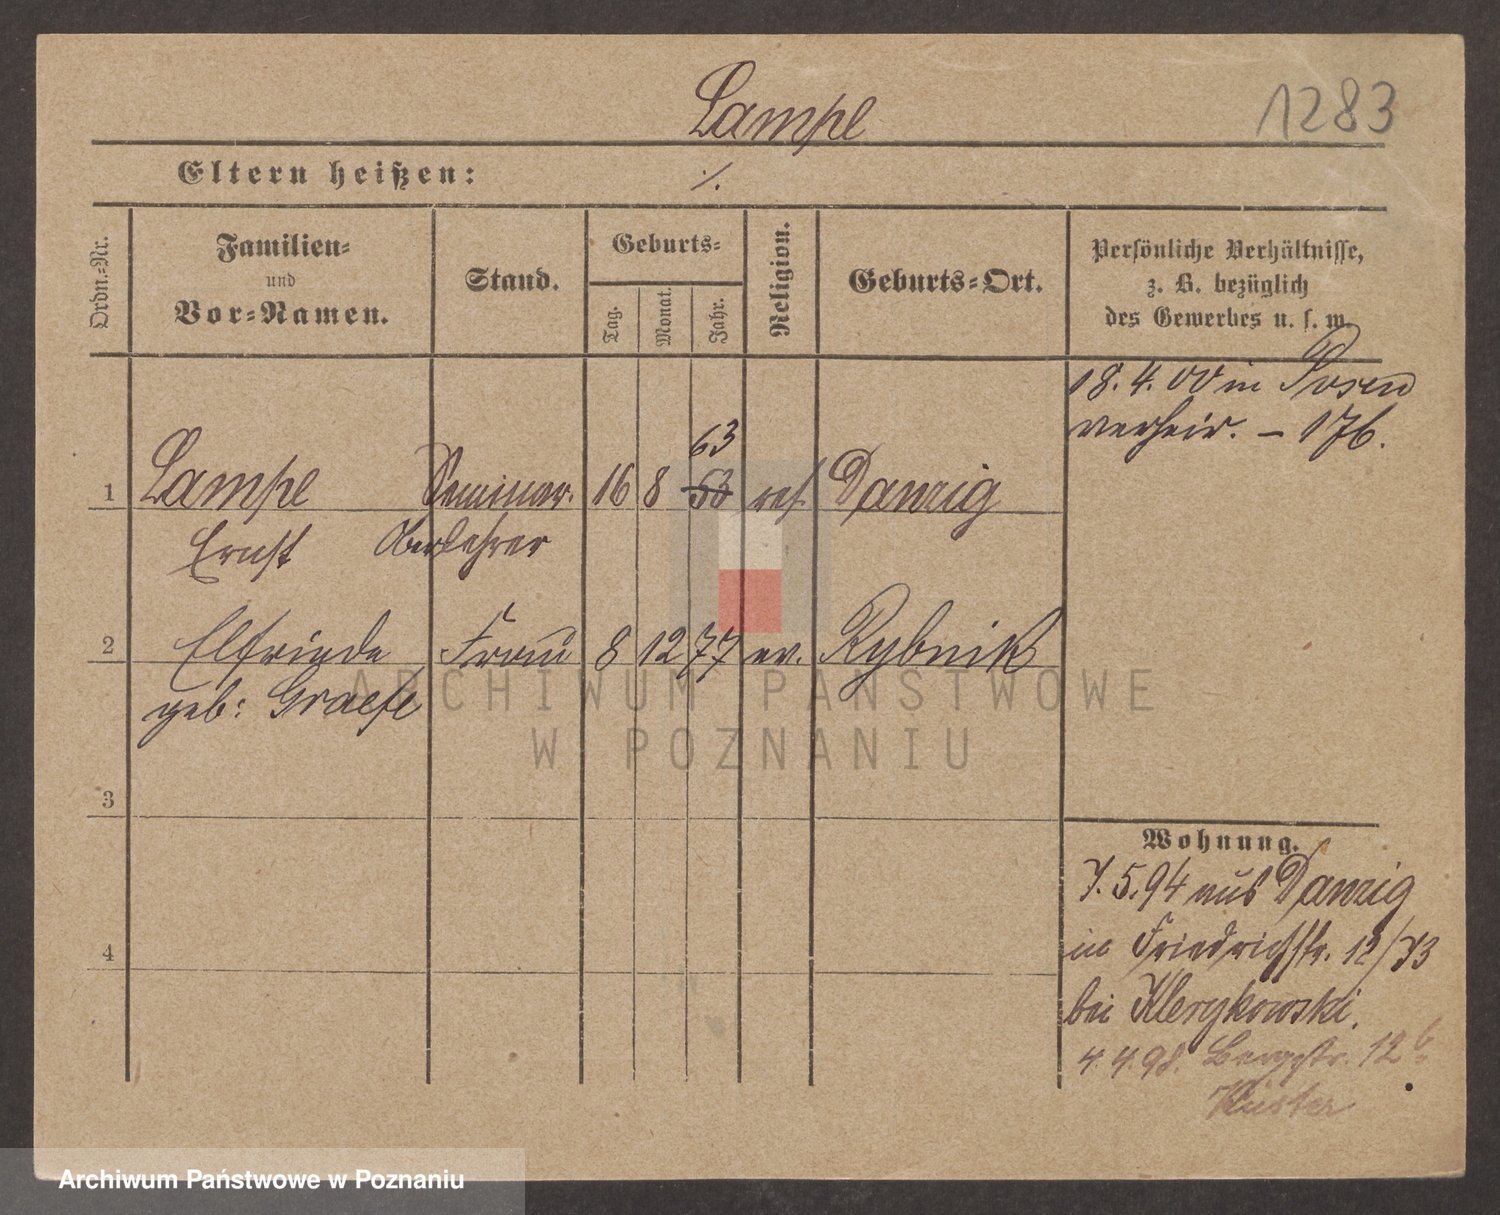 Lampe
1283
Eltern heißen: ./.
Ordn.-Nr.
Familien-
und
Vor-Namen.
Stand.
Geburts-
Tag.
Monat.
Jahr.
Religion.
Geburts-Ort.
Persönliche Verhältnisse,
z. B. bezüglich
des Gewerbes u. s. w.
18. 4. 00 in Posen
verheir. – 176.
63
1 Lampe Seminar. 16 8 53 ref. Danzig
Ernst Oberlehrer
2 Elfriede Frau 8 12 77 ev. Rybnik
geb: Graefe
3
4
Wohnung.
7. 5. 94 aus Danzig
in Friedrichstr. 12/73
bei Klerykowski.
4. 4. 98. Bergstr. 12b
Küster
ARCHIWUM PAŃSTWOWE
W POZNANIU
Archiwum Państwowe w Poznaniu